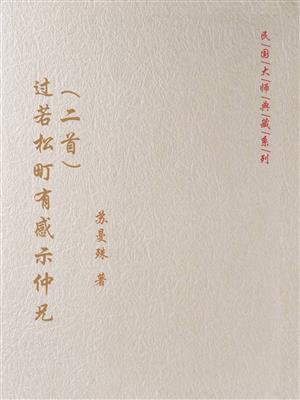 民国大师典藏系列
过若松町有感示仲兄
（二首）
苏曼殊 著